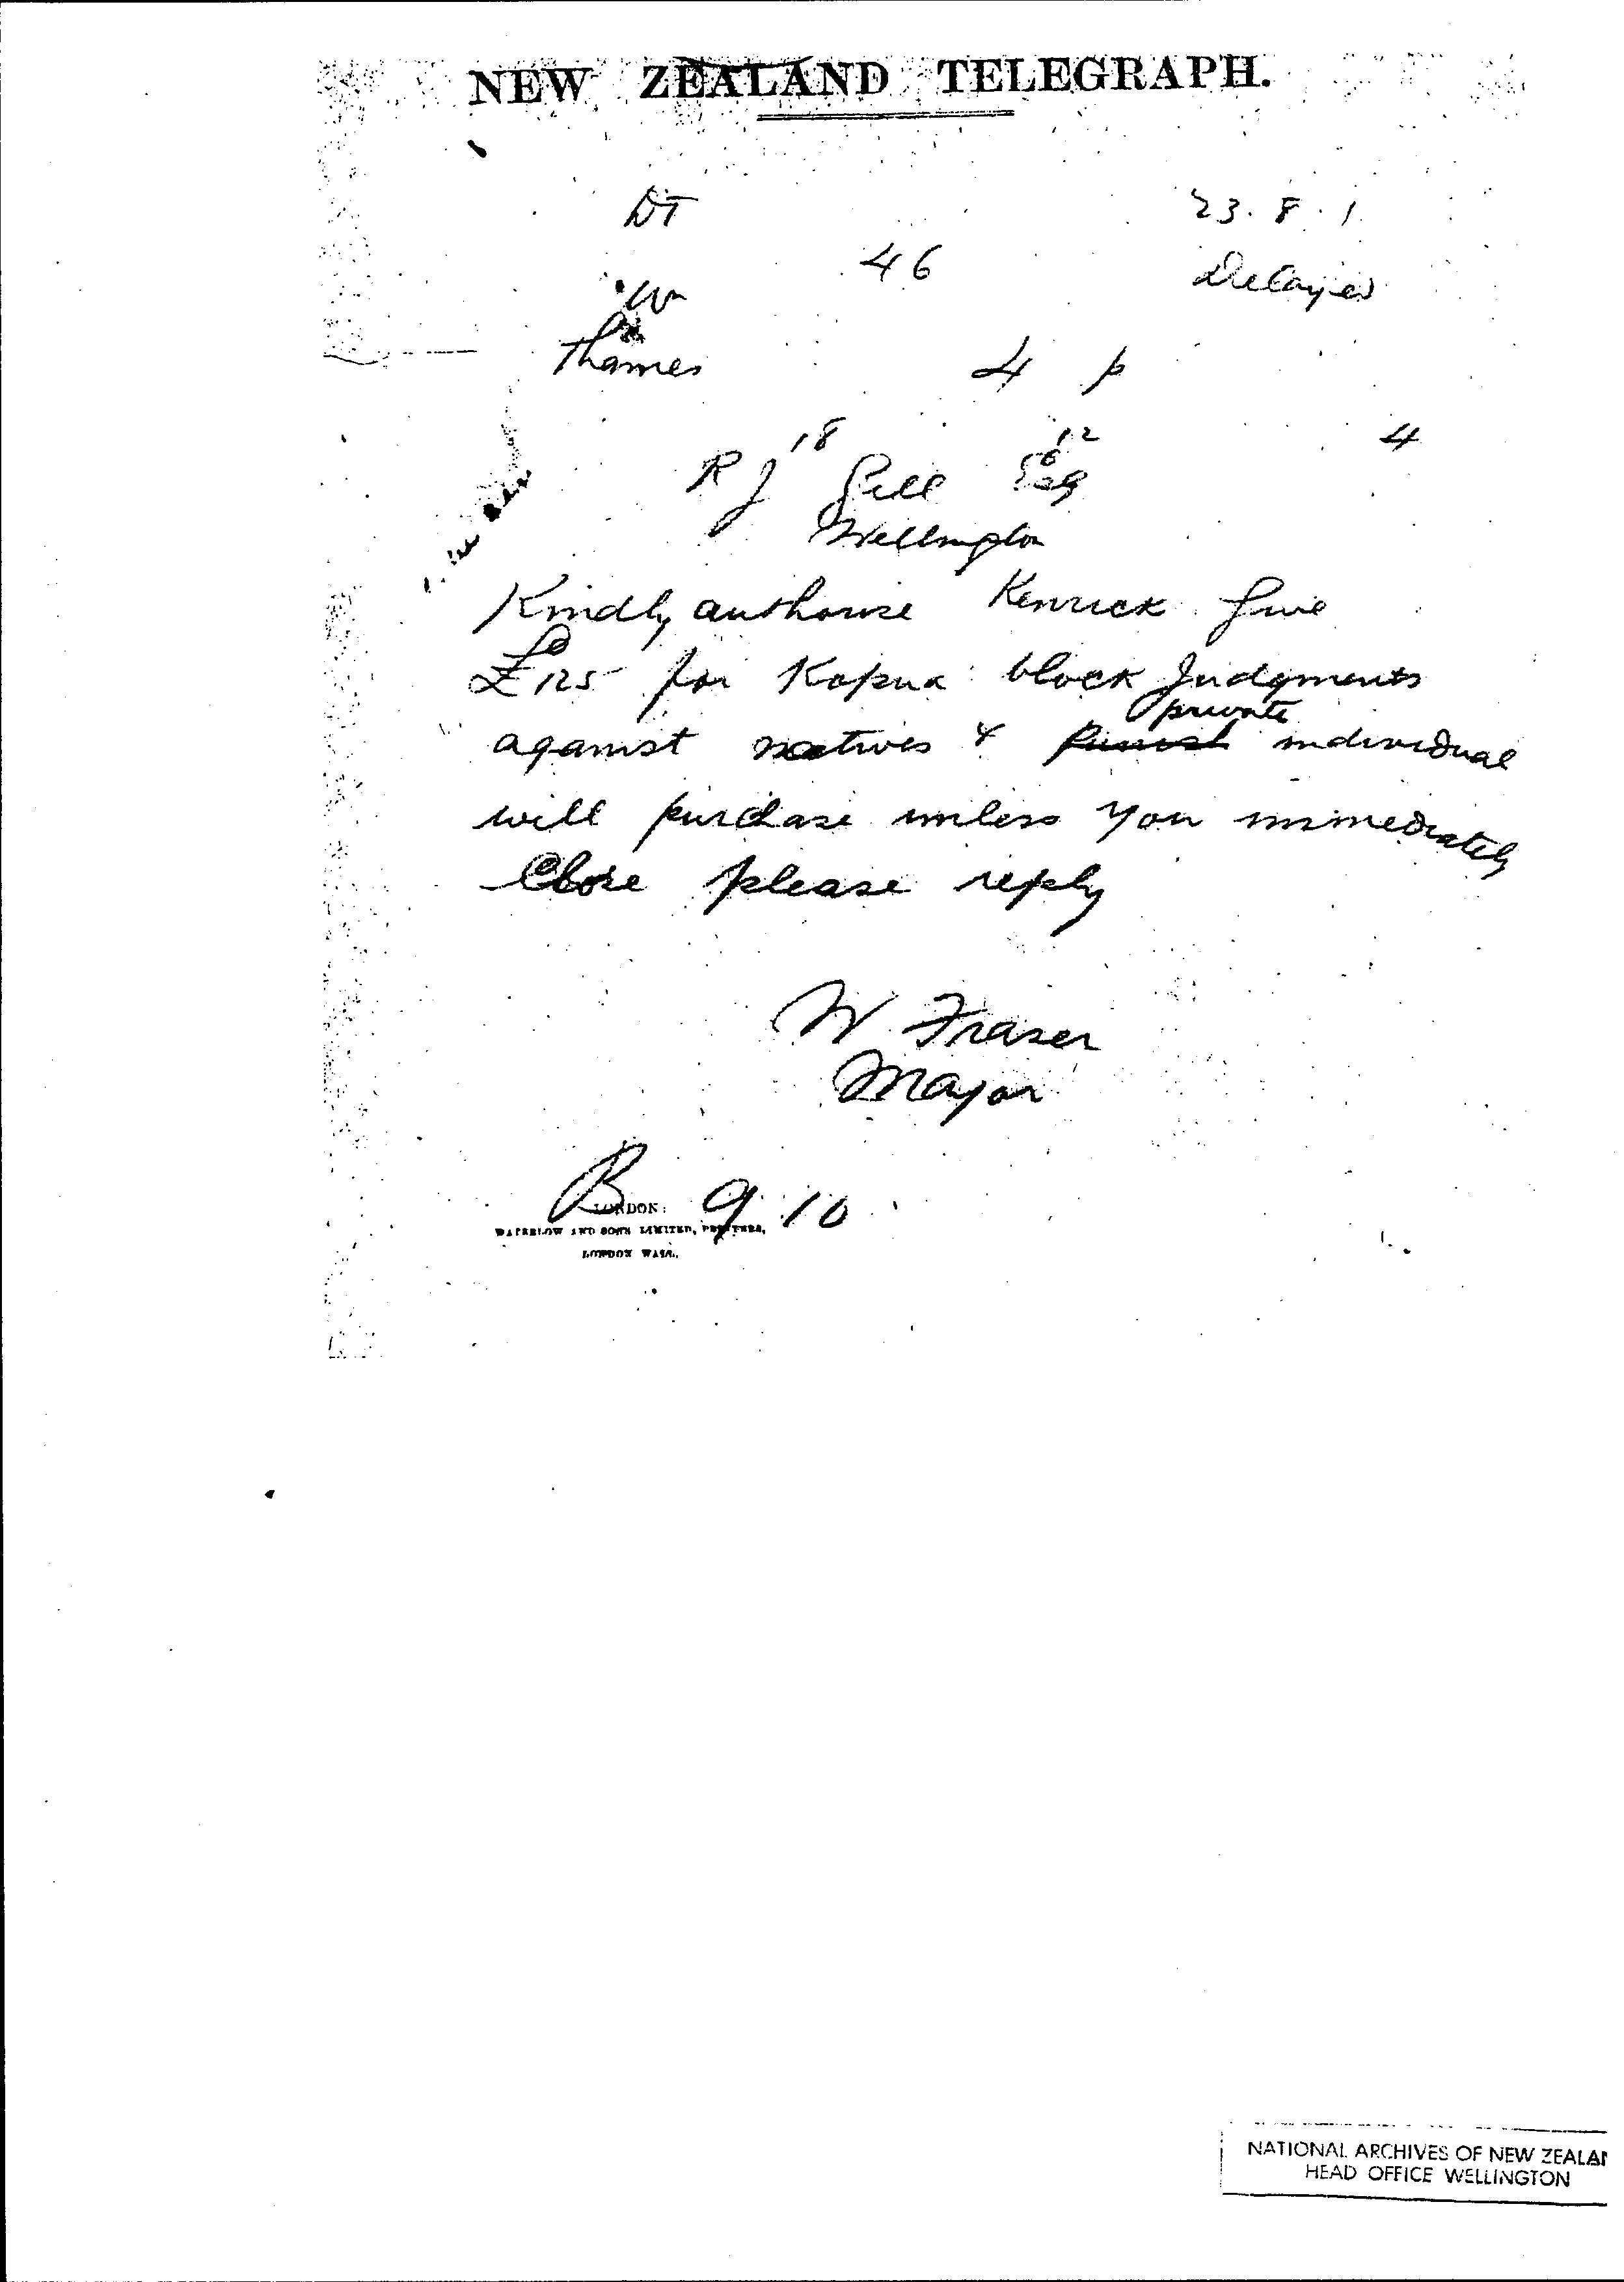 NEW ZEALAND TELEGRAPH.
DT 23.8.1
46 Delayed
Thames 4 p
18 12 4
R J Gill Esq
Wellington
Kindly authorise Kenrick give
£125 for Kopua block Judgments
private
against natives & individual
will purchase unless you immediately
Close please reply
W Fraser
Mayor
B 9 10
LONDON:
WATERLOW AND SONS LIMITED, PRINTERS,
LONDON WALL.
NATIONAL ARCHIVES OF NEW ZEALAN
HEAD OFFICE WELLINGTON